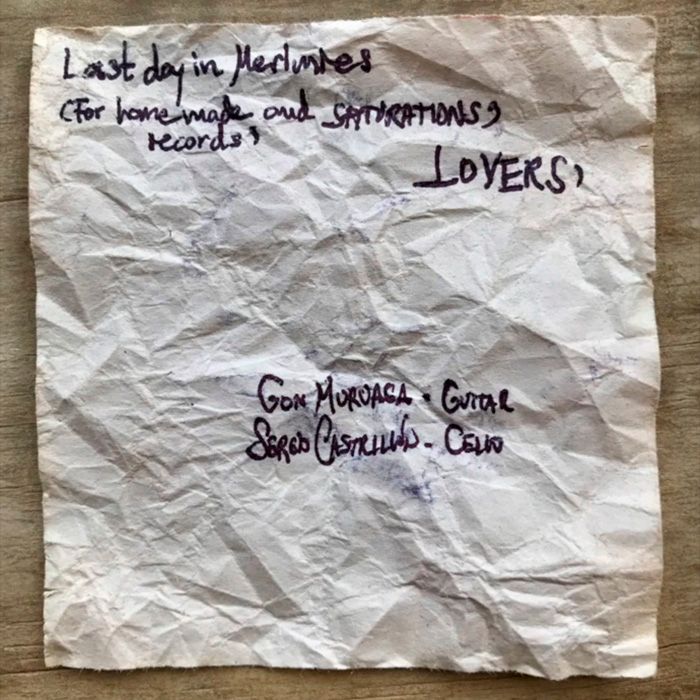 Last day in Merlunes
(For home made and SATURATIONS)
records)
LOVERS)
GON MURUAGA - GUITAR
SERGIO CASTRILLÓN - CELLO